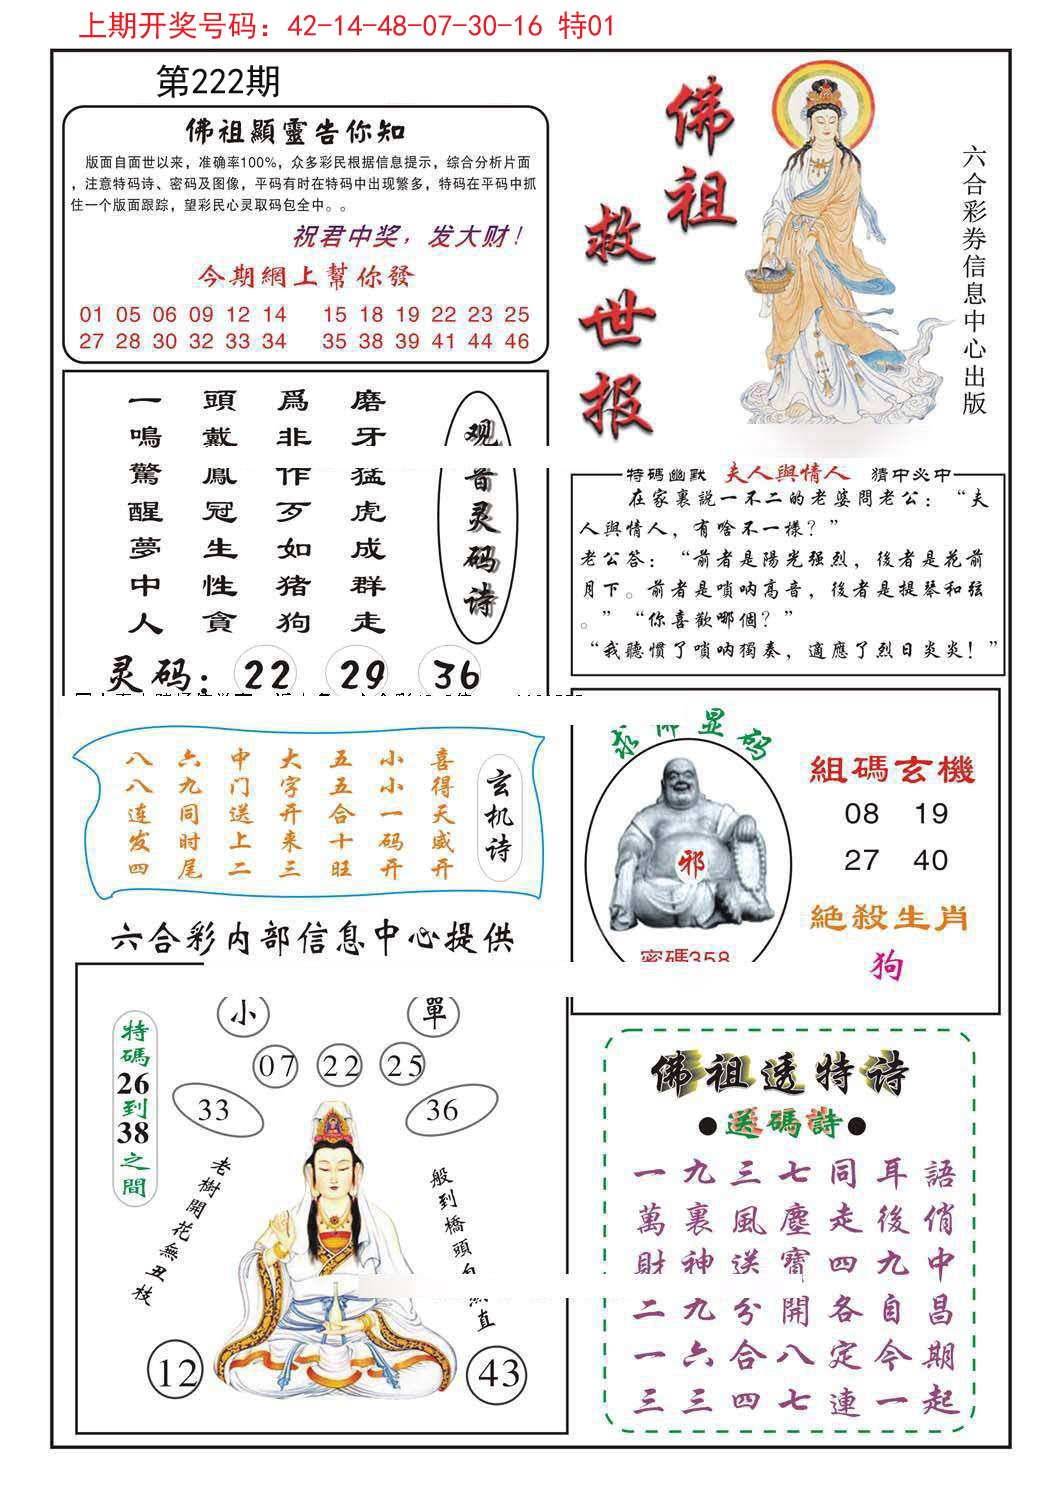 上期开奖号码：42-14-48-07-30-16 特01
第222期
佛祖顯靈告你知
版面自面世以来，准确率100%，众多彩民根据信息提示，综合分析片面
，注意特码诗、密码及图像，平码有时在特码中出现繁多，特码在平码中抓
住一个版面跟踪，望彩民心灵取码包全中。。
祝君中奖，发大财！
今期網上幫你發
01 05 06 09 12 14 15 18 19 22 23 25
27 28 30 32 33 34 35 38 39 41 44 46
佛祖
救世报
六合彩券信息中心出版
观音灵码诗
磨牙猛虎成群走
爲非作歹如猪狗
頭戴鳳冠生性貪
一鳴驚醒夢中人
灵码：22 29 36
特碼幽默 夫人與情人 猜中必中
在家裏説一不二的老婆問老公：“夫
人與情人，有啥不一樣？”
老公答：“前者是陽光强烈，後者是花前
月下。前者是嗩呐高音，後者是提琴和弦
。”“你喜歡哪個？”
“我聽慣了嗩呐獨奏，適應了烈日炎炎！”
玄机诗
喜得天威开
小小一码开
五五合十旺
大字开来三
中门送上二
六九同时尾
八八连发四
求佛显码
邪
密碼358
組碼玄機
08 19
27 40
絶殺生肖
狗
六合彩内部信息中心提供
特碼26到38之間
小 單
07 22 25
33 36
老樹開花無丑枝
般到橋頭自然直
12 43
佛祖透特诗
●送碼詩●
一九三七同耳語
萬裏風塵走後俏
財神送寳四九中
二九分開各自昌
一六合八定今期
三三四七連一起